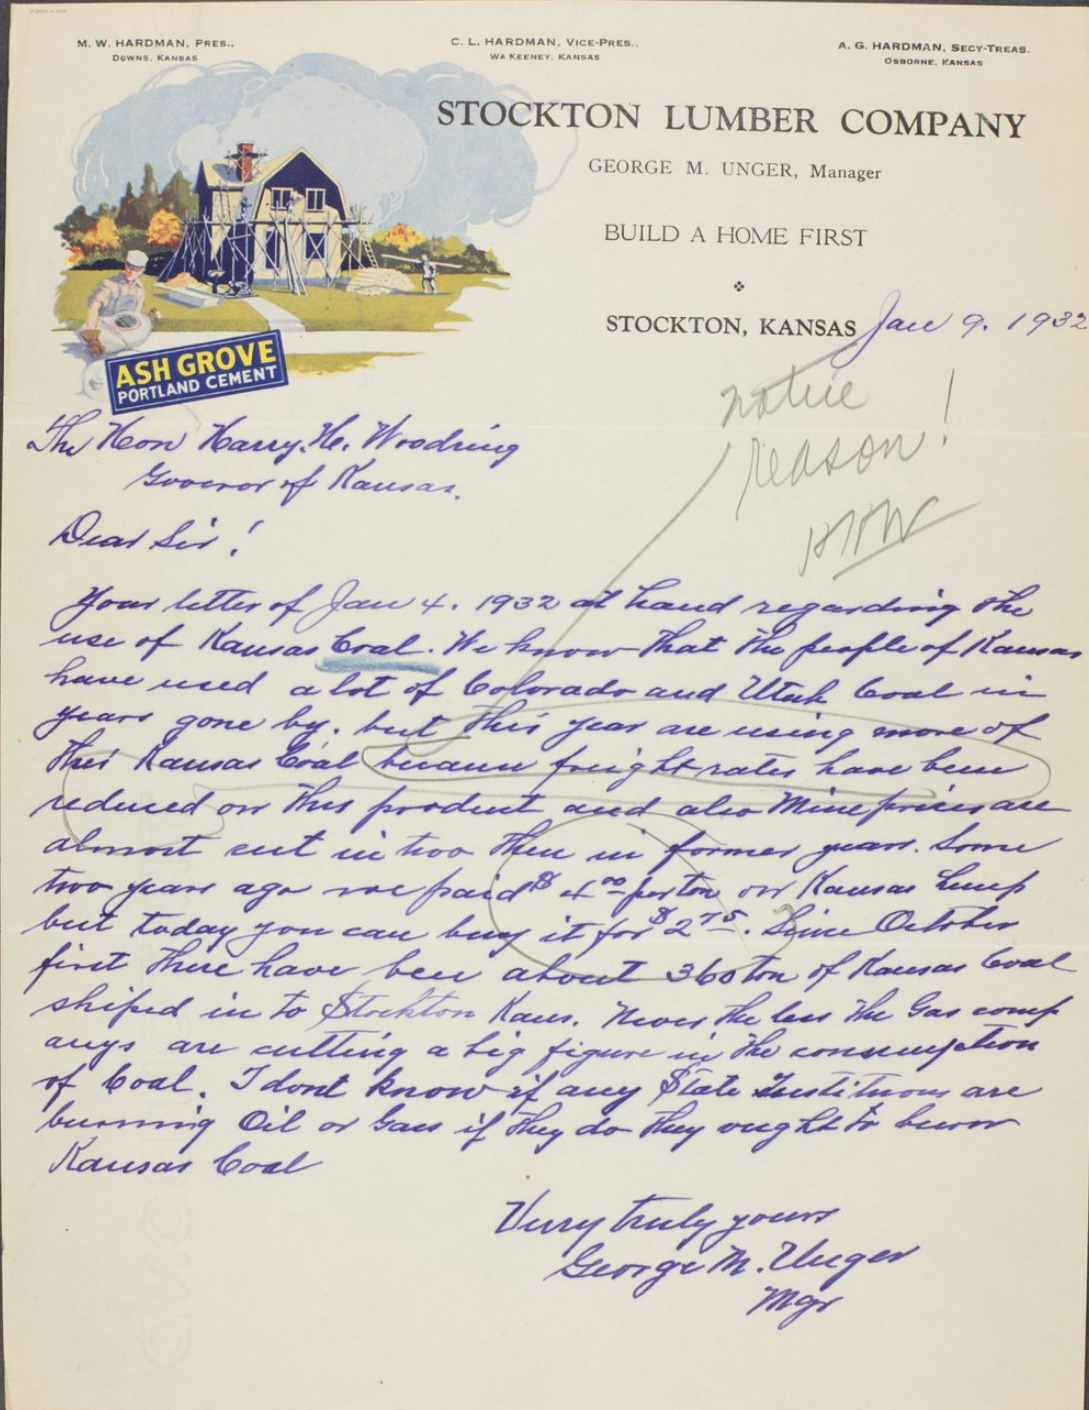 M. W. HARDMAN, PRES.,
DOWNS, KANSAS
C. L. HARDMAN, VICE-PRES.,
WA KEENEY, KANSAS
A. G. HARDMAN, SECY-TREAS.
OSBORNE, KANSAS
STOCKTON LUMBER COMPANY
GEORGE M. UNGER, Manager
BUILD A HOME FIRST
STOCKTON, KANSAS Jan 9. 1932
ASH GROVE
PORTLAND CEMENT
notice
reason!
HHW
The Hon Harry. H. Woodring
Govenor of Kansas.
Dear Sir!
Your letter of Jan 4. 1932 at hand regarding the
use of Kansas Coal. We know that the people of Kansas
have used a lot of Colorado and Utah Coal in
years gone by. but this year are using more of
this Kansas Coal because freight rates have been
reduced on this product and also Mine prices are
almost cut in two then in former years. Some
two years ago we paid $4.00 per ton on Kansas Lump
but today you can buy it for $2.75. Since October
first there have been about 360 ton of Kansas Coal
shiped in to Stockton Kans. Never the less the Gas comp
anys are cutting a big figure in the consumption
of Coal. I dont know if any State Institutions are
burning Oil or Gas if they do they ought to burn
Kansas Coal
Verry truly yours
George M. Unger
Mgr